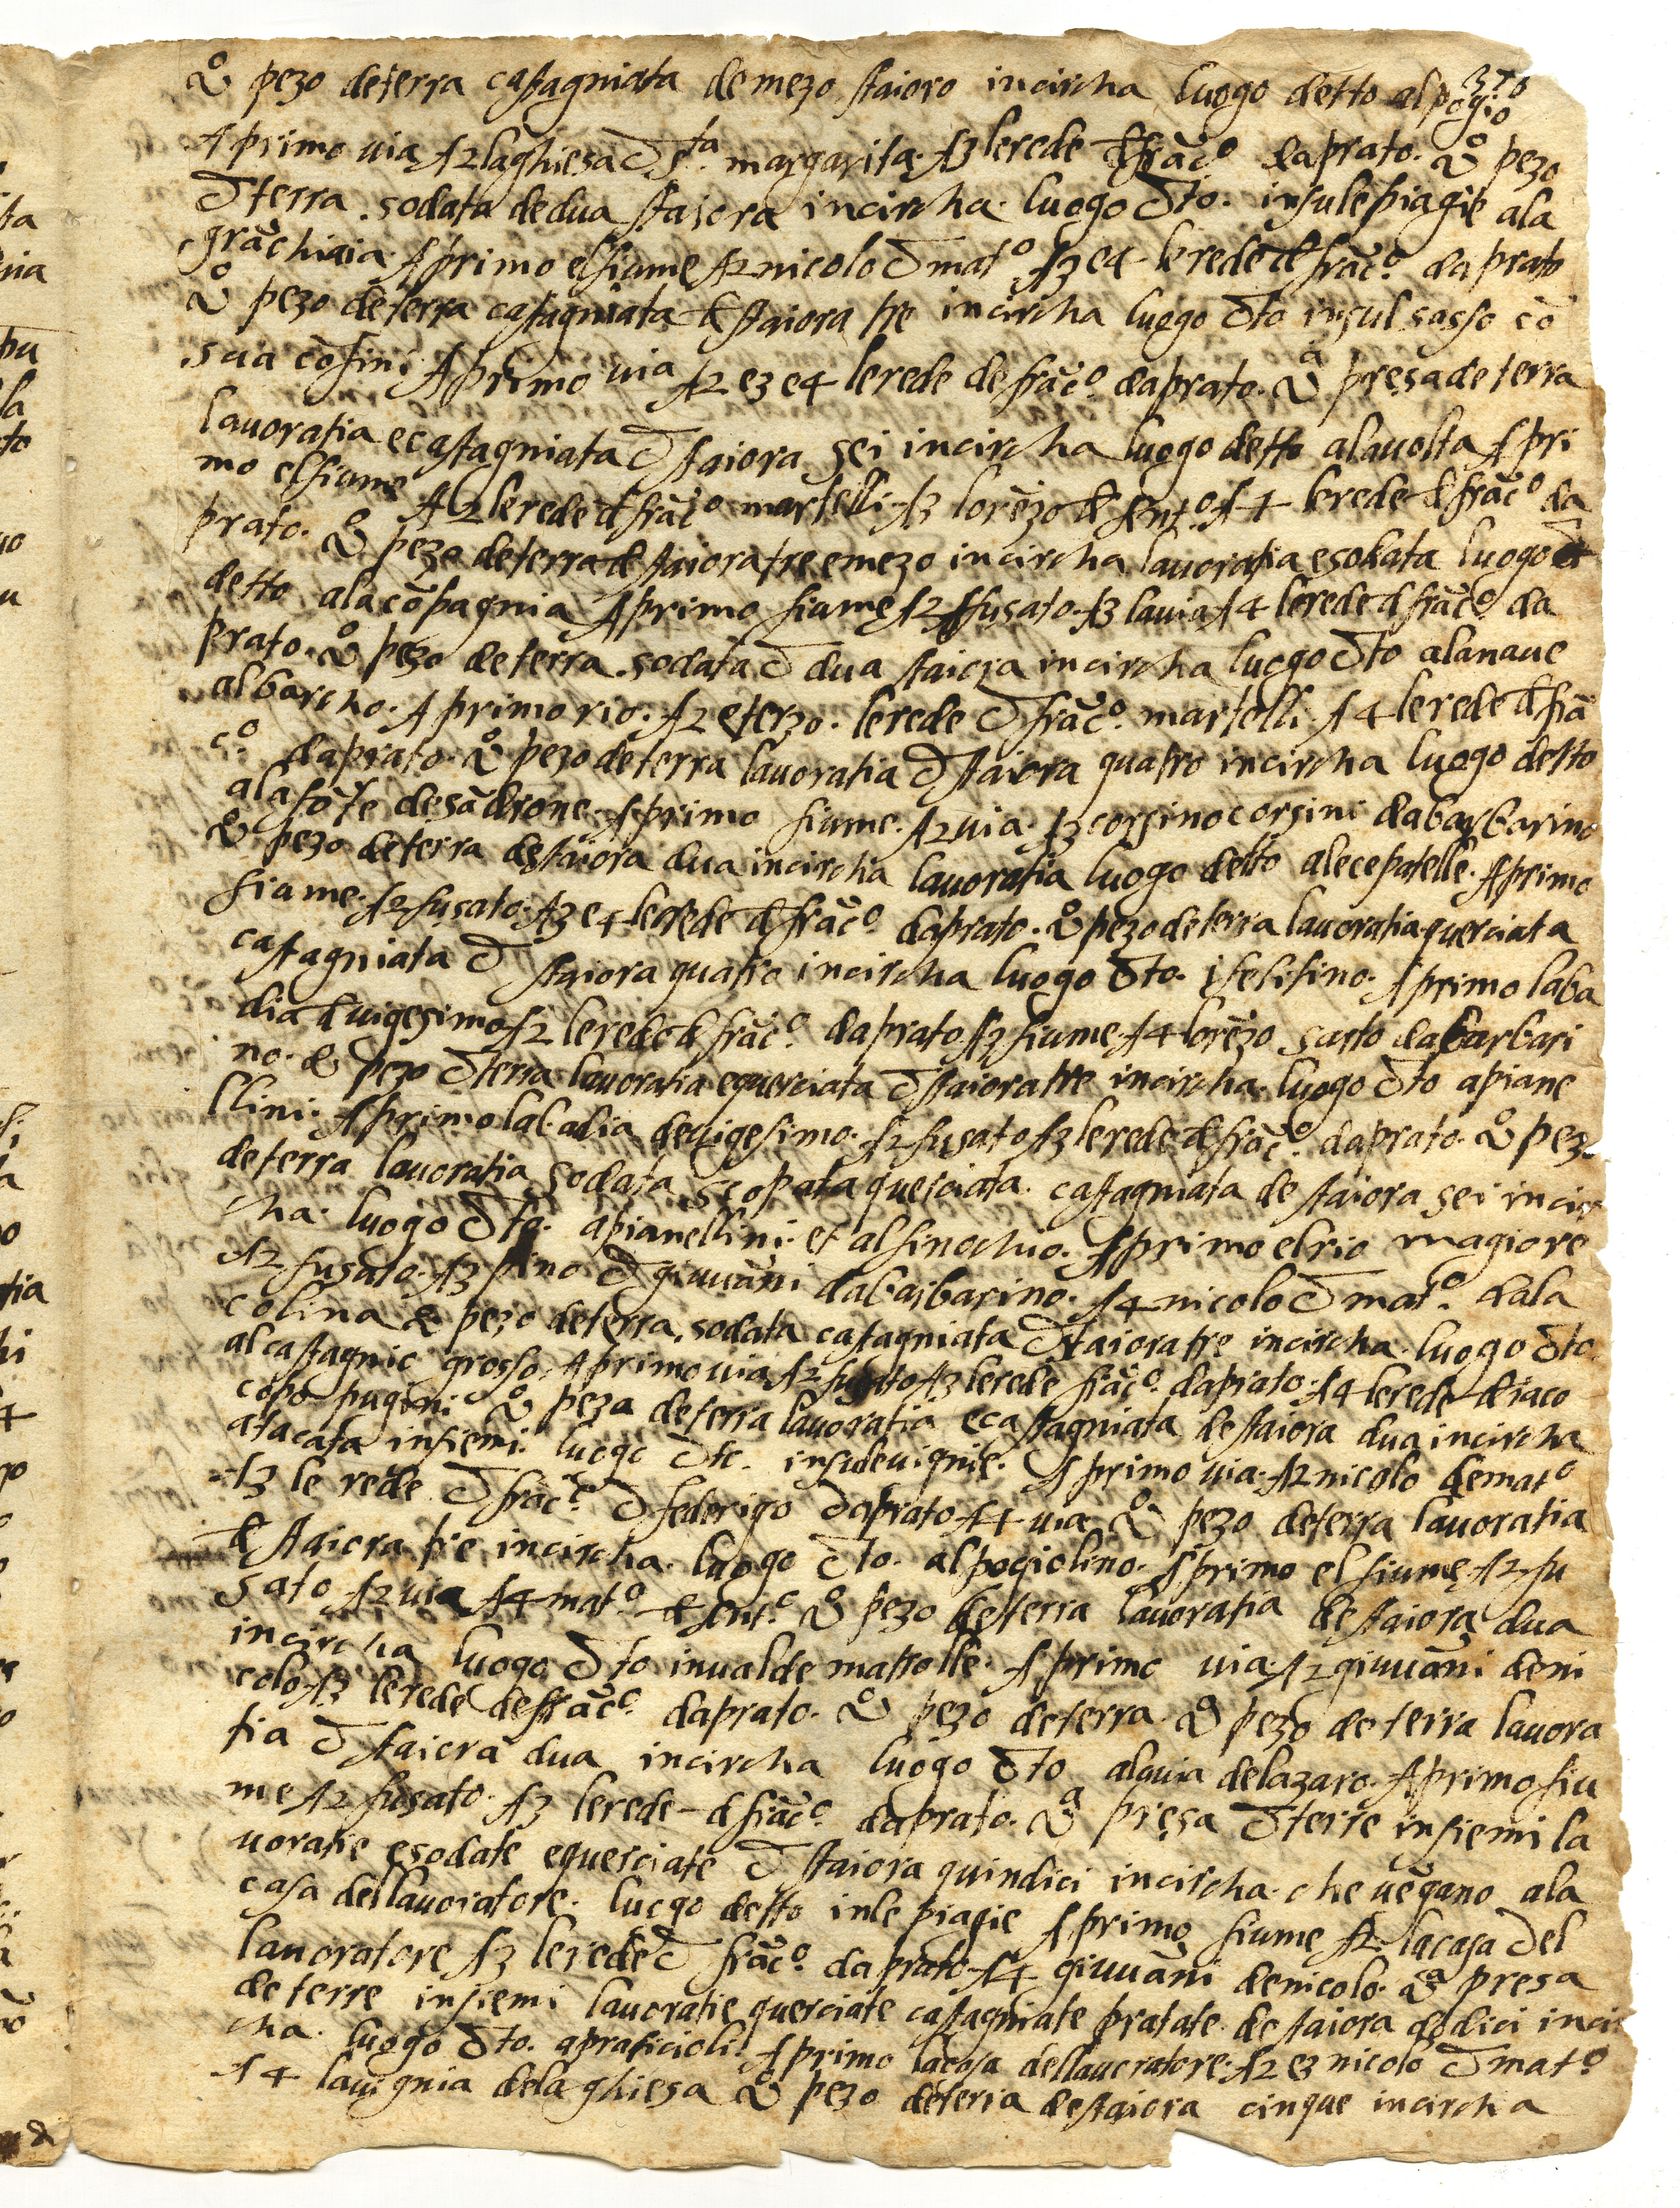 370
Uº pezo deterra castagniata demezo staioro incircha luogo detto alpogio
A primo via A2 laghiesa d sta margarita A3 lerede d frācº daprato. Uº pezo
d terra sodata dedua staiora incircha luogo dto. insulepiagie ala
grāchiaia A primo elfiume A2 nicolo d matº A3 e4 lerede d frācº daprato
Uº pezo deterra castagniata d staiora tre incircha luogo dto insul sasso cō
sua cōfini A primo via A2 e3 e4 lerede de frācº daprato. Uª presa deterra
lavoratia ecastagniata d staiora sei incircha luogo detto alavolta A pri
mo elfiume A2 lerede d frācº martelli A3 lorēzo d sntº A4 lerede d frācº da
prato. Uº pezo deterra d staiora tre emezo incircha lavoratia esodata luogo
detto alacōpagnia A primo fiume A2 fusato A3 lavia A4 lerede d frācº da
prato. Uº pezo deterra sodata d dua staiora incircha luogo dto alanave
albarcho. A primo rio. A2 eterzo. lerede d frācº martelli A4 lerede d frā
cº daprato. Uº pezo deterra lavoratia d staiora quatro incircha luogo detto
alafōte desādrone A primo fiume. A2 via. A3 corsino corsini dabarbarino
Uº pezo deterra destaiora dua incircha lavoratia luogo detto alecepatelle. A primo
fiame. A2 fusato. A3 e4 lerede d frācº daprato. Uº pezo deterra lavoratia querciata
castagniata d staiora quatro incircha luogo dto. isesitino. A primo laba
dia d vigesimo A2 lerede d frācº daprato A3 fiume A4 lorēzo sarto dabarbari
no. Uº pezo d terra lavoratia equerciata d staiora tre incircha luogo dto apiane
llini. A primo labadia devigesimo. A2 fusato A3 lerede d frācº daprato. Uº pezo
deterra lavoratia sodata scopata querciata castagniata de staiora sei incir
cha luogo dto. apianellini et alfinochio. A primo elrio magiore
A2 fusato. A3 pino d giuvāni dabarbarino. A4 nicolo d matº dala
colina Uº pezo deterra sodata castagniata d staiora tre incircha. luogo dto.
alcastagnio grosso. A primo via A2 fusato A3 lerede frācº daprato. A4 lerede d iaco
copo pugini Uº peza deterra lavoratia ecastagniata destaiora dua incircha
atacata insiemi luogo dto. insulevignie. A primo via. A2 nicolo dematº
A3 le rede d frācº d federigo daprato A4 via Uº pezo deterra lavoratia
d staiora tre incircha luogo dto. alpogiolino. A primo elfiume A2 fu
sato A2 via A4 matº d sntº Uº pezo deterra lavoratia destaiora dua
incircha luogo dto invalde matrolle. A primo via. A2 giuvāni deni
colo A3 lerede defrācº daprato. Uº pezo deterra. Uº pezo deterra lavora
tia d staiora dua incircha luogo dto alavia delazaro. A primo fiu
me A2 fusato. A3 lerede d frācº daprato. Uª presa d terre insiemi la
voratie esodate equerciate d staiora quindici incircha. che vēgano ala
casa dellavoratore. luogo detto inle piagie A primo fiume A2 lacasa del
lavoratore A3 lerede d frācº daprato A4 giuvāni denicolo. Uª presa
deterre insiemi lavoratie querciate castagniate pratate. destaiora dodici incir
cha. luogo dto. apraticioli. A primo lacasa dellavoratore. A2 e3 nicolo d matº
A4 lavignia dela ghiesa Uº pezo deterra destaiora cinque incircha